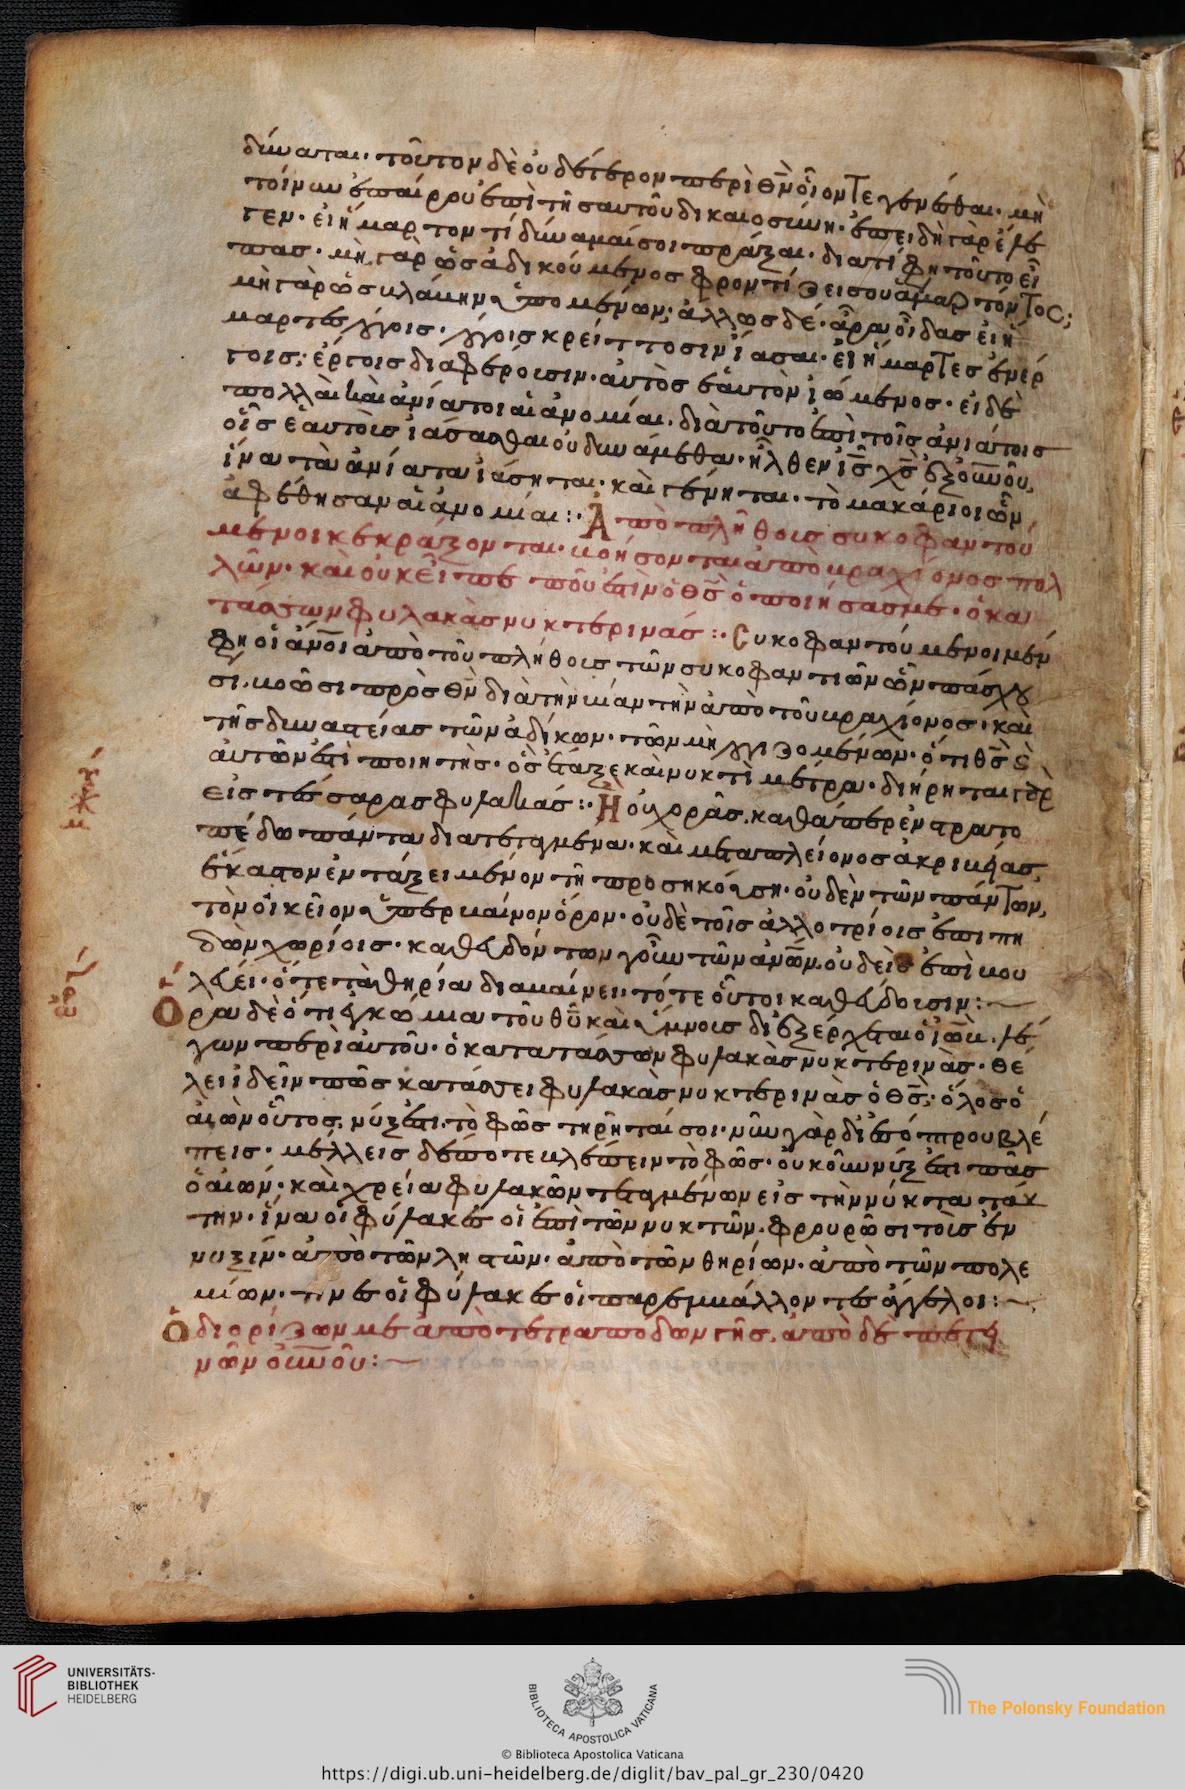 δύναται· τοῦτον δὲ οὐ δεύτερον περὶ θν̅ οἷόν τε γενέσθαι· μὴ
τοίνυν ἐπαίρου ἐπὶ τῆ σαυτοῦ δικαιοσύνη· ἐπειδὴ γὰρ ἔλε
γεν· εἰ ἥμαρτον τί δύναμαί σοι πράξαι· διατί φη τοῦτο εἶ
πας· μὴ γὰρ ὡς ἀδικούμενος φροντίζει σου ἁμαρτόντος;
μὴ γὰρ ὡς
ἄλλως δέ· ἆρα οἶδας εἰ ἥ
μαρτες λόγοις· λόγοις κρείττοσιν ἰᾶσαι· εἰ ἥμαρτες ἐν ἔρ
γοις; ἔργοις διαφέρουσιν· αὐτὸς ἑαυτὸν ἰώμενος· εἰ δὲ
πολλαὶ καὶ ἀνίατοι αἱ ἀνομίαι· διὰ τοῦτο ἐπὶ τοῖς ἀνιάτοις
οἷς ἑαυτοὺς ἰάσασθαι οὐ δυνάμεθα· ἦλθεν ις̅ χς̅ ἐξ ουνου,
ἵνα τὰ ἀνίατα ἰάσηται· καὶ γένηται· τὸ μακάριοι ὧν
ἀφέθησαν αἱ ἀνομίαι:· Ἀπὸ πλήθους συκοφαντού
μενοι κεκράξονται· βοήσονται ἀπὸ βραχίονος πολ
λῶν· καὶ οὐκ εἶπε ποῦ ἐστιν ὁ θς̅ ὁ ποιήσας με· ὁ κα
τατάσσων φυλακὰς νυκτερινάς:· Συκοφαντούμενοι μέν
φη οἱ ἄνοι ἀπὸ τοῦ πλήθους τῶν συκοφαντιῶν ὧν πάσχου
σι· βοῶσι πρὸς θν̅ διὰ τὴν βίαν τὴν ἀπὸ τοῦ βραχίονος· καὶ
τῆς δυναστείας τῶν ἀδίκων· τῶν μὴ λογιζομένων· ὅτι θς̅
αὐτῶν ἐστὶ ποιητής· ὃς ἔταξε καὶ νυκτὶ μέτρα· διήρηται γὰρ
εἰς τέσσαρας φυλακάς:· Ἢ οὐχ ὁρᾶς· καθάπερ ἐν στρατο
πέδω πάντα διατεταγμένα· καὶ μετὰ πλείονος ἀκριβείας
ἕκαστον ἐν τάξει μένον τῆ προσηκούση· οὐδὲν τῶν πάντων,
τὸν οἰκεῖον ὑπερβαῖνον ὅρον· οὐδὲ τοῖς ἀλλοτρίοις ἐπιπη
δῶν χωρίοις· καθευδόντων γοῦν τῶν ἀνων οὐδεὶς ἐπιβου
λεύει· ὅτε τὰ θηρία διαβαίνει· τότε οὗτοι καθεύδουσιν:
Ὅρα δὲ ὅτι ἐγκώμια τοῦ θυ̅ καὶ ὕμνους διεξέρχεται ὁ ἰωβ· λέ
γων περὶ αὐτοῦ· ὁ κατατάσσων φυλακὰς νυκτερινὰς· θέ
λει ἰδεῖν πῶς κατάσσει φυλακὰς νυκτερινὰς ὁ θς̅; ὅλος ὁ
αἰὼν οὗτος, νύξ ἐστι· τὸ φῶς τηρῆταί σοι· νῦν γὰρ δι᾽ ἐσόπτρου βλέ
πεις· μέλλεις δέποτε βλέπειν τὸ φῶς· οὐκοῦν νύξ ἐστι πᾶς
ὁ αἰών· καὶ χρεία φυλακῶν τεταγμένων εἰς τὴν νύκτα ταύ
την· ἵνα οἱ φύλακες οἱ ἐπὶ τῶν νυκτῶν· φρουρῶσι τοὺς ἐν
νυξίν· ἀπὸ τῶν ληστῶν· ἀπὸ τῶν θηρίων· ἀπὸ τῶν πολε
μίων· τίνες οἱ φύλακες οἱ παρεμβάλλοντες ἄγγελοι:
Ὁ διορίζων με ἀπὸ τετραπόδων γῆς, ἀπὸ δὲ πετει
νῶν οὐνοῦ:
UNIVERSITÄTS-
BIBLIOTHEK
HEIDELBERG
BIBLIOTECA APOSTOLICA VATICANA
The Polonsky Foundation
© Biblioteca Apostolica Vaticana
https://digi.ub.uni-heidelberg.de/diglit/bav_pal_gr_230/0420